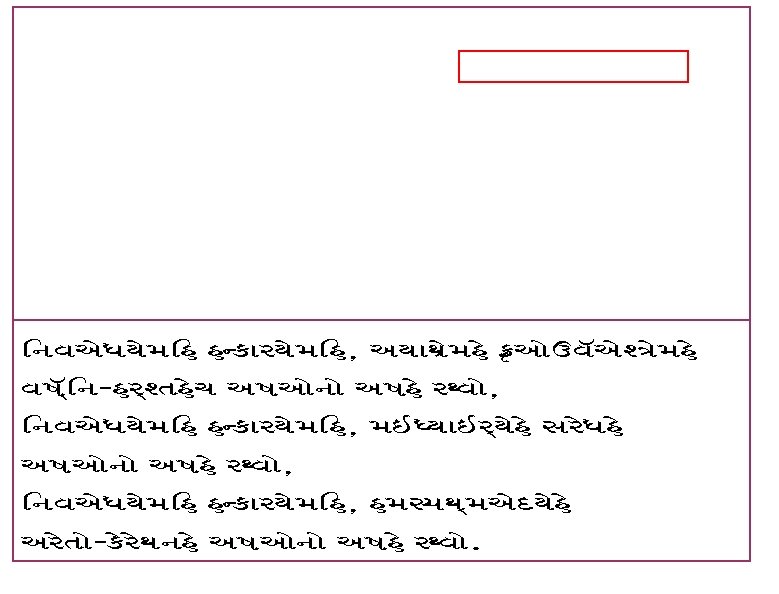 નિવએધયેમહિ હન્કારયેમહિ, અયાથ્રેમહે ફ્રઓઉર્વએશ્ત્રેમહે
વર્ષ્નિ-હર્શ્તહેચ અષઓનો અષહે રથ્વો,
નિવએધયેમહિ હન્કારયેમહિ, મઈધ્યાઈર્યેહે સરેધહે
અષઓનો અષહે રથ્વો,
નિવએધયેમહિ હન્કારયેમહિ, હમસ્પથ્મએદયેહે
અરેતો-કેરેથનહે અષઓનો અષહે રથ્વો.